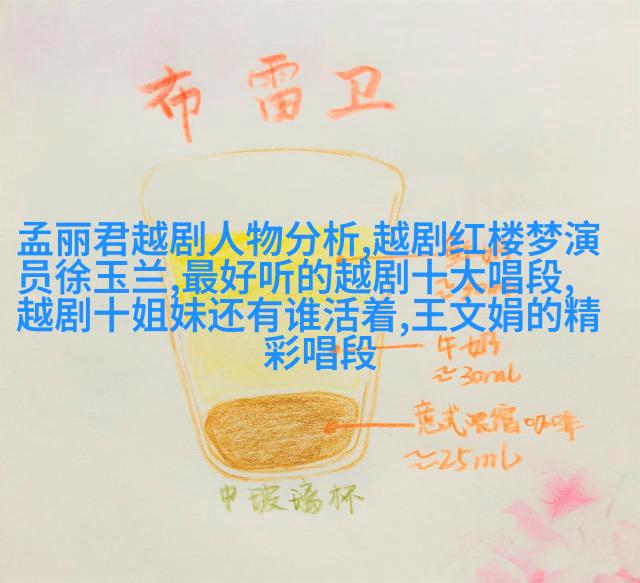 布雷卫
孟丽君越剧人物分析,越剧红楼梦演
员徐玉兰,最好听的越剧十大唱段,
越剧十姐妹还有谁活着,王文娟的精
彩唱段
牛奶
≈30ml
意式浓缩咖啡
≈25ml
中玻璃杯